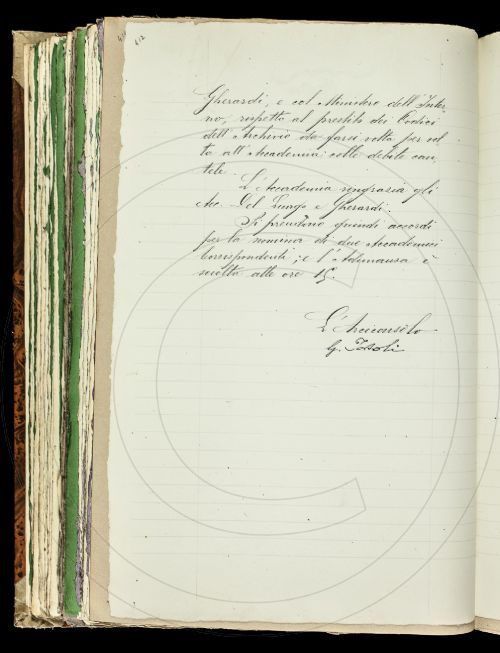 612
Gherardi, e col Ministero dell'Inter-
no, rispetto al prestito dei Codici
dell'Archivio da farsi volta per vol-
ta all'Accademia colle debite cau-
tele.
L'Accademia ringrazia gli
Acc. Del Lungo e Gherardi.
Si prendono quindi accordi
per la nomina di due Accademici
Corrispondenti; e l'Adunanza è
sciolta alle ore 15.
L'Arciconsolo
G. Tortoli